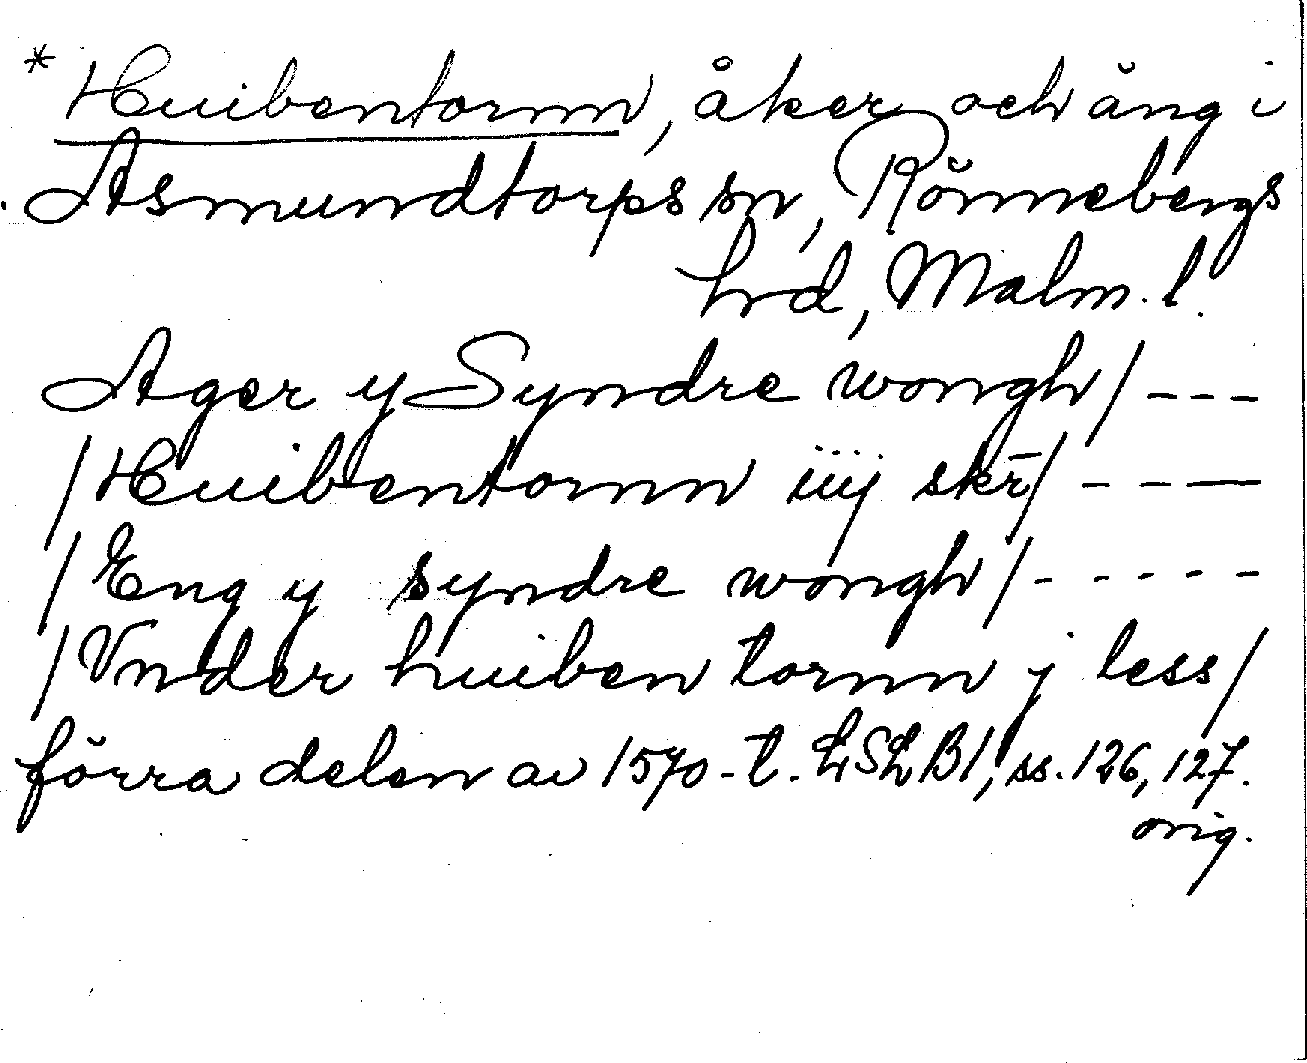 * Huibentornn, åker och äng i
Asmundtorps sn, Rönnebergs
hd, Malm. l.
Ager y Syndre wongh/ ---
/Huibentornn iiij skr̄/ ---
/Eng y syndre wongh/-----
/Vnder huiben tornn j less/
förra delen av 1570-t. LSLB1, ss. 126, 127.
orig.